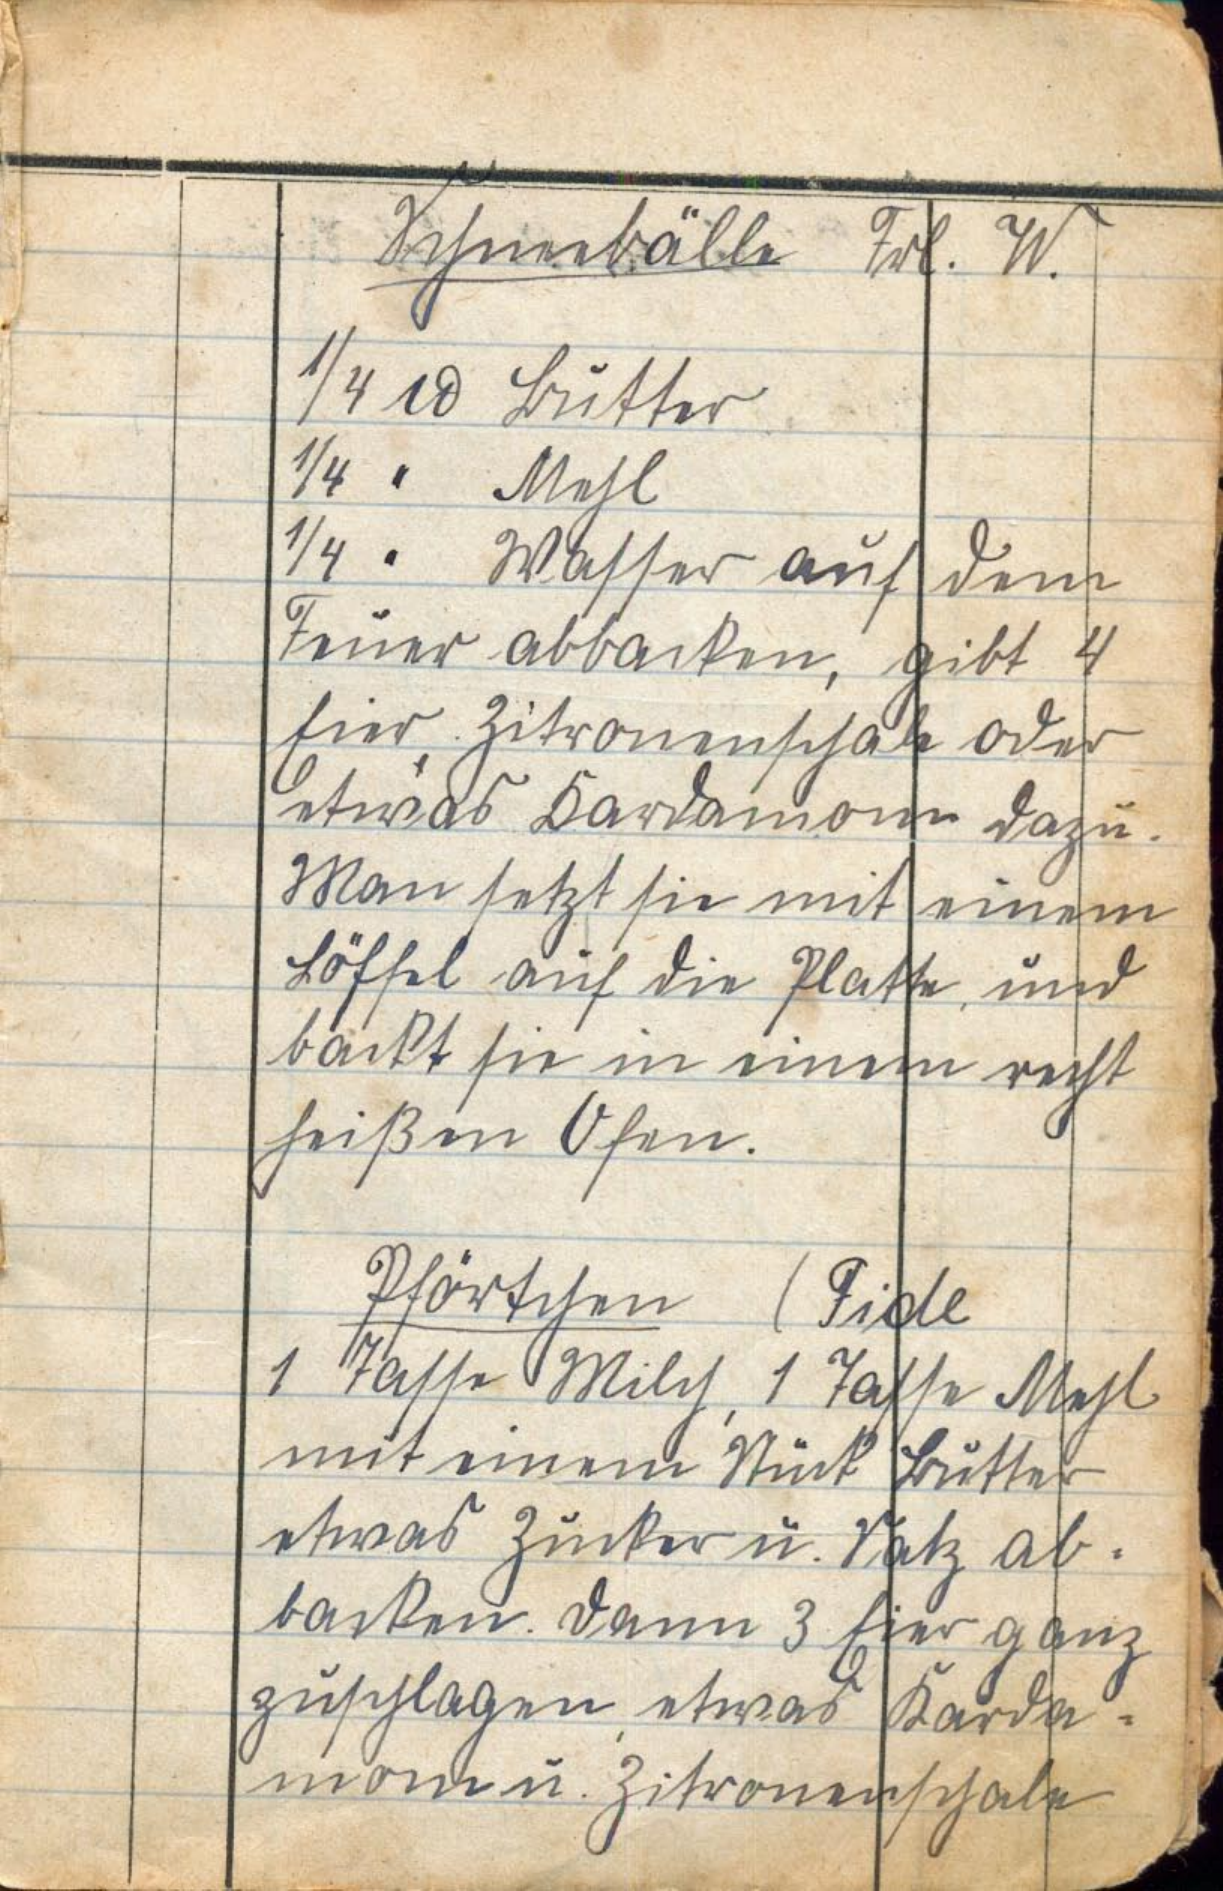 Schneebälle Frl. W.
1/4 ℔ Butter
1/4 " Mehl
1/4 " Wasser auf dem
Feuer abbacken, gibt 4
Eier, Zitronenschale oder
etwas Kardamom dazu.
Man setzt sie mit einem
Löffel auf die Platte, und
backt sie in einem recht
heißen Ofen.
Pförtchen (Fide
1 Tasse Milch, 1 Tasse Mehl
mit einem Stück Butter
etwas Zucker u. Salz ab-
backen. Dann 3 Eier ganz
zuschlagen, etwas Karda-
mom u. Zitronenschale